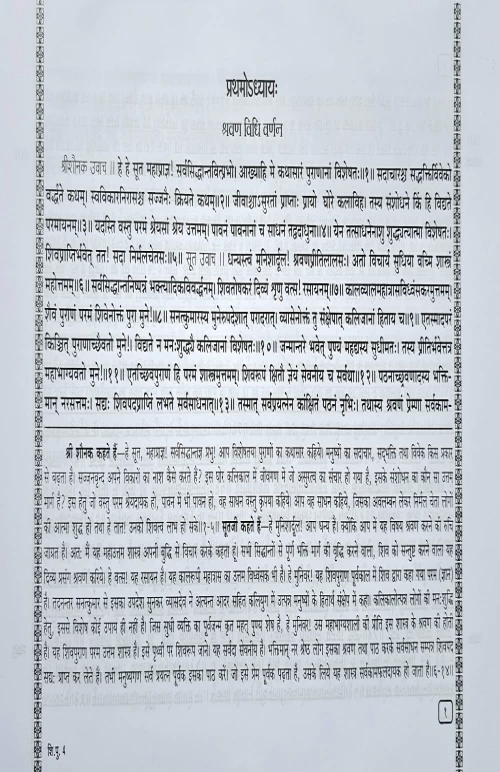 प्रथमोऽध्यायः
श्रवण विधि वर्णन
श्रीशौनक उवाच ॥ हे हे सूत महाप्राज्ञ! सर्वसिद्धान्तवित्प्रभो। आख्याहि मे कथासारं पुराणानां विशेषतः॥१॥ सदाचारश्च सद्भक्तिर्विवेको
वर्द्धते कथम्। स्वविकारनिरासश्च सज्जनैः क्रियते कथम्॥२॥ जीवाश्चाऽसुरतां प्राप्ताः प्रायो घोरे कलाविह। तस्य संशोधने किं हि विद्यते
परमायनम्॥३॥ यदस्ति वस्तु परमं श्रेयसां श्रेय उत्तमम्। पावनं पावनानां च साधनं तद्वदाधुना॥४॥ येन तत्साधनेनाशु शुद्ध्यत्यात्मा विशेषतः।
शिवप्राप्तिर्भवेत् तात! सदा निर्मलचेतसः॥५॥ सूत उवाच ॥ धन्यस्त्वं मुनिशार्दूल! श्रवणप्रीतिलालसः। अतो विचार्य सुधिया वच्मि शास्त्रं
महोत्तमम्॥६॥ सर्वसिद्धान्तनिष्पन्नं भक्त्यादिकविवर्द्धनम्। शिवतोषकरं दिव्यं श्रृणु वत्स! रसायनम्॥७॥ कालव्यालमहात्रासविध्वंसकरमुत्तमम्।
शैवं पुराणं परमं शिवेनोक्तं पुरा मुने!॥८॥ सनत्कुमारस्य मुनेरुपदेशात् परादरात्। व्यासेनोक्तं तु संक्षेपात् कलिजानां हिताय च॥९॥ एतस्मादपरं
किञ्चित् पुराणाच्छैवतो मुने!। विद्यते न मनःशुद्ध्यै कलिजानां विशेषतः॥१०॥ जन्मान्तरे भवेत् पुण्यं महद्यस्य सुधीमतः। तस्य प्रीतिर्भवेत्तत्र
महाभाग्यवतो मुने!॥११॥ एतच्छिवपुराणं हि परमं शास्त्रमुत्तमम्। शिवरूपं क्षितौ ज्ञेयं सेवनीयं च सर्वथा॥१२॥ पठनाच्छ्रवणादस्य भक्ति-
मान् नरसत्तमः। सद्यः शिवपदप्राप्तिं लभते सर्वसाधनात्॥१३॥ तस्मात् सर्वप्रयत्नेन कांक्षितं पठनं नृभिः। तथास्य श्रवणं प्रेम्णा सर्वकाम-
श्री शौनक कहते हैं—हे सूत, महाप्राज्ञ! सर्वसिद्धान्तज्ञ प्रभु! आप विशेषतया पुराणों का कथासार कहिये। मनुष्यों का सदाचार, सद्भक्ति तथा विवेक किस प्रकार
से बढ़ता है। सज्जनवृन्द अपने विकारों का नाश कैसे करते हैं? इस घोर कलिकाल में जीवगण में जो असुरत्व का संचार हो गया है, इसके संशोधन का कौन सा उत्तम
मार्ग है? इस हेतु जो वस्तु परम श्रेयदायक हो, पावन में भी पावन हो, वह साधन वस्तु कृपया कहिये। आप वह साधन कहिये, जिसका अवलम्बन लेकर निर्मल चेता लोगों
की आत्मा शुद्ध हो तथा हे तात! उनको शिवत्व लाभ हो सके॥१-५॥ सूतजी कहते हैं—हे मुनिशार्दूल! आप धन्य हैं। क्योंकि आप में यह विषय श्रवण करने की रुचि
जाग्रत है। अतः मैं यह महाउत्तम शास्त्र अपनी बुद्धि से विचार करके कहता हूं। सभी सिद्धान्तों से पूर्ण भक्ति मार्ग की वृद्धि करने वाला, शिव को सन्तुष्ट करने वाला यह
दिव्य प्रसंग श्रवण करिये। हे वत्स! यह रसायन है। यह कालरूपी महात्रास का उत्तम विध्वंसक भी है। हे मुनिवर! यह शिवपुराण पूर्वकाल में शिव द्वारा कहा गया परम (ज्ञान)
है। तदनन्तर सनत्कुमार से इसका उपदेश सुनकर व्यासदेव ने अत्यन्त आदर सहित कलियुग में उत्पन्न मनुष्यों के हितार्थ संक्षेप में कहा। कलिकालोत्पन्न लोगों की मनःशुद्धि
हेतु, इससे विशेष कोई उपाय ही नहीं है। जिस सुधी व्यक्ति का पूर्वजन्म कृत महत् पुण्य शेष है, हे मुनिवर! उस महाभाग्यशाली की प्रीति इस शास्त्र के श्रवण की होती
है। यह शिवपुराण परम उत्तम शास्त्र है। इसे पृथ्वी पर शिवरूप जानो। यह सर्वदा सेवनीय है। भक्तिमान् नर श्रेष्ठ लोग इसका श्रवण तथा पाठ करके सर्वसाधन सम्पन्न शिवपद
सद्यः प्राप्त कर लेते हैं। तभी मनुष्यगण सर्व प्रयत्न पूर्वक इसका पाठ करें। जो इसे प्रेम पूर्वक पढ़ता है, उसके लिये यह शास्त्र सर्वकामफलदायक हो जाता है॥६-१४॥
१
शि.पु. 4